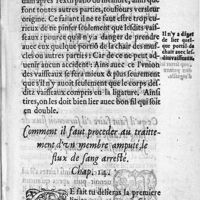 dain apres l'extirpatiō du membre, ains que
tost ou autres parties, tousiours vers leur
origine. Ce faisant il ne te faut estre trop cu-
rieux de ne prendre seulement que lesdits vais-
seaux: pource qu'il n'y a danger de prendre
quelque portion de la chair des muscles,
ou autres parties: car de ce ne peut aduenir
aucun accident. Ains auec ce l'vnion
des vaisseaux se fera mieux & plus seurement
que s'il n'y auoit seulement que le corps des-
dits vaisseaux compris en la ligature. Ainsi
tirez, on les doit bien lier auec bon fil qui soit
en double.
Il n'y a dāger
de lier quel-
que portiō de
chair auec les-
dits vaisseaux.
Comment il faut proceder au traitte-
ment d'vn membre amputé, le
flux de sang arresté.
Chap. 14.
Ce fait tu deslieras la premiere